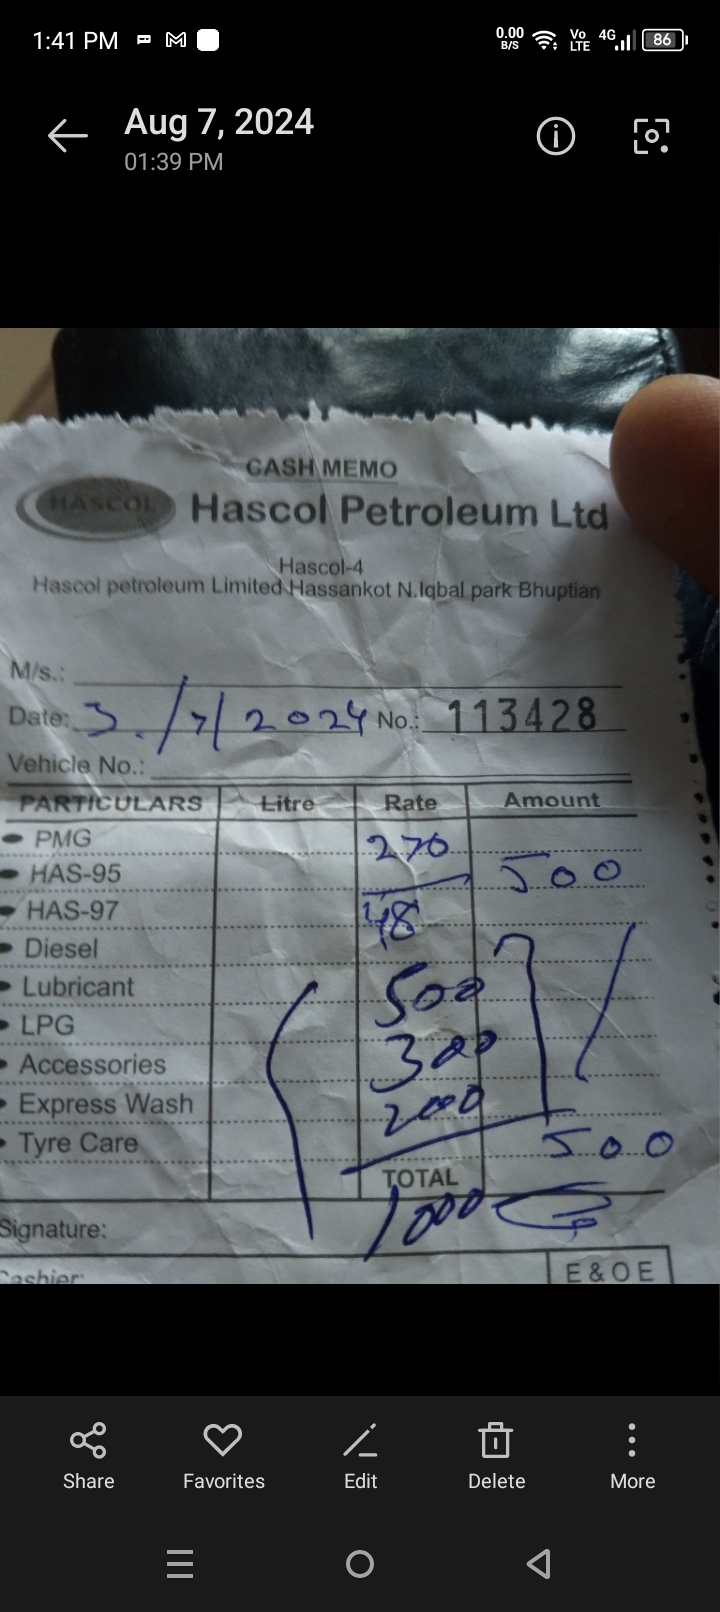 1:41 PM
0.00 B/S Vo LTE 4G 86
Aug 7, 2024
01:39 PM
CASH MEMO
HASCOL Hascol Petroleum Ltd
Hascol-4
Hascol petroleum Limited Hassankot N.Iqbal park Bhuptian
M/s.:
Date: 3./7/2024 No.: 113428
Vehicle No.:
PARTICULARS Litre Rate Amount
PMG 270
HAS-95 500
HAS-97 48
Diesel
Lubricant 500
LPG
Accessories 300
Express Wash 200
Tyre Care 500
TOTAL
1000
Signature:
Cashier:
E & O E
Share Favorites Edit Delete More